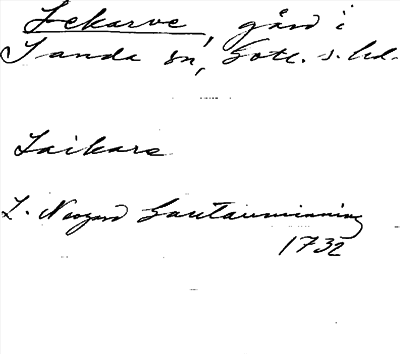 Lekarve, gård i
Sanda sn, Gotl. s. hd.
Laikare
L. Neogard Gautauminning
1732